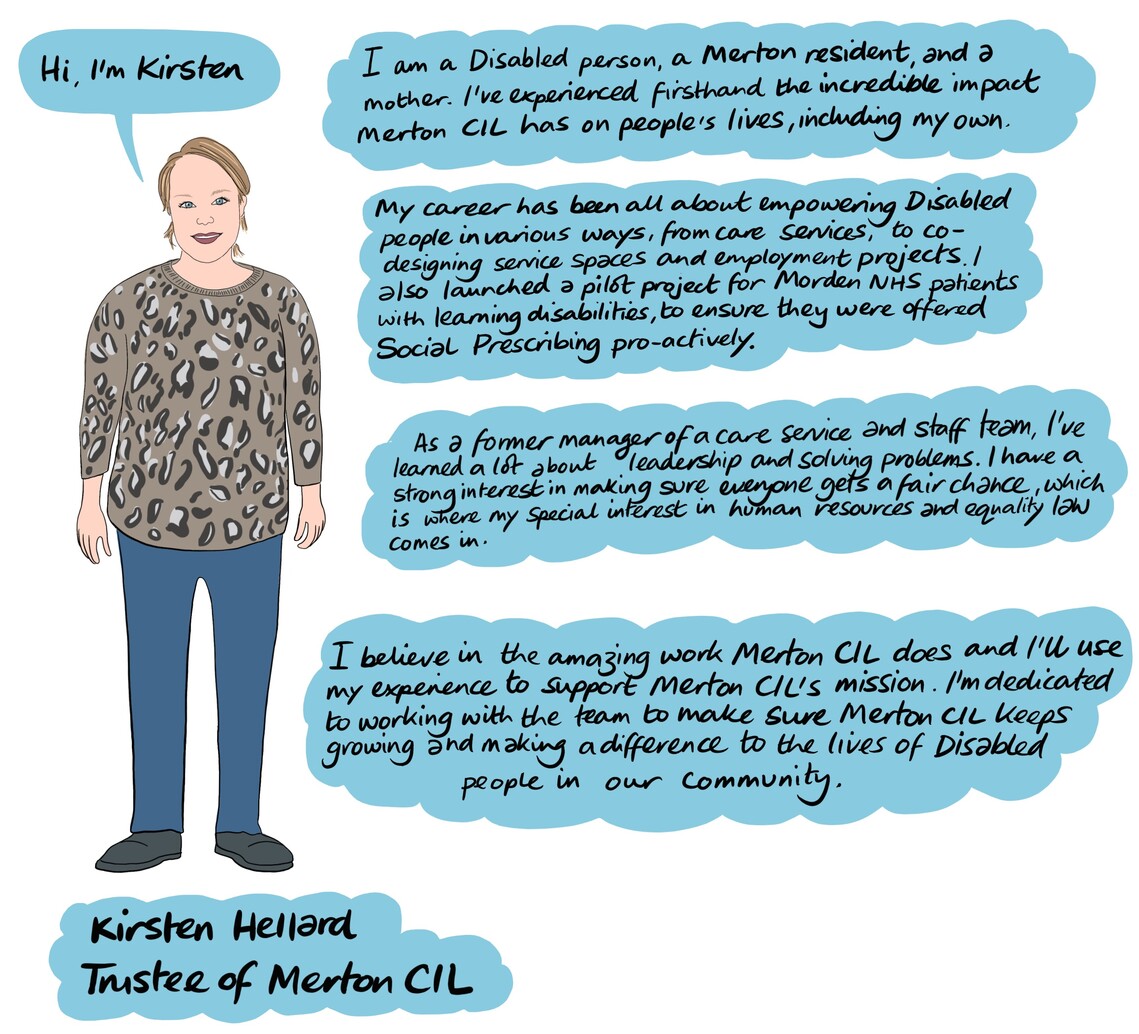 Hi, I'm Kirsten
I am a Disabled person, a Merton resident, and a
mother. I've experienced firsthand the incredible impact
Merton CIL has on people's lives, including my own.
My career has been all about empowering Disabled
people in various ways, from care services, to co-
designing service spaces and employment projects. I
also launched a pilot project for Morden NHS patients
with learning disabilities, to ensure they were offered
Social Prescribing pro-actively.
As a former manager of a care service and staff team, I've
learned a lot about leadership and solving problems. I have a
strong interest in making sure everyone gets a fair chance, which
is where my special interest in human resources and equality law
comes in.
I believe in the amazing work Merton CIL does and I'll use
my experience to support Merton CIL's mission. I'm dedicated
to working with the team to make sure Merton CIL keeps
growing and making a difference to the lives of Disabled
people in our community.
Kirsten Hellard
Trustee of Merton CIL